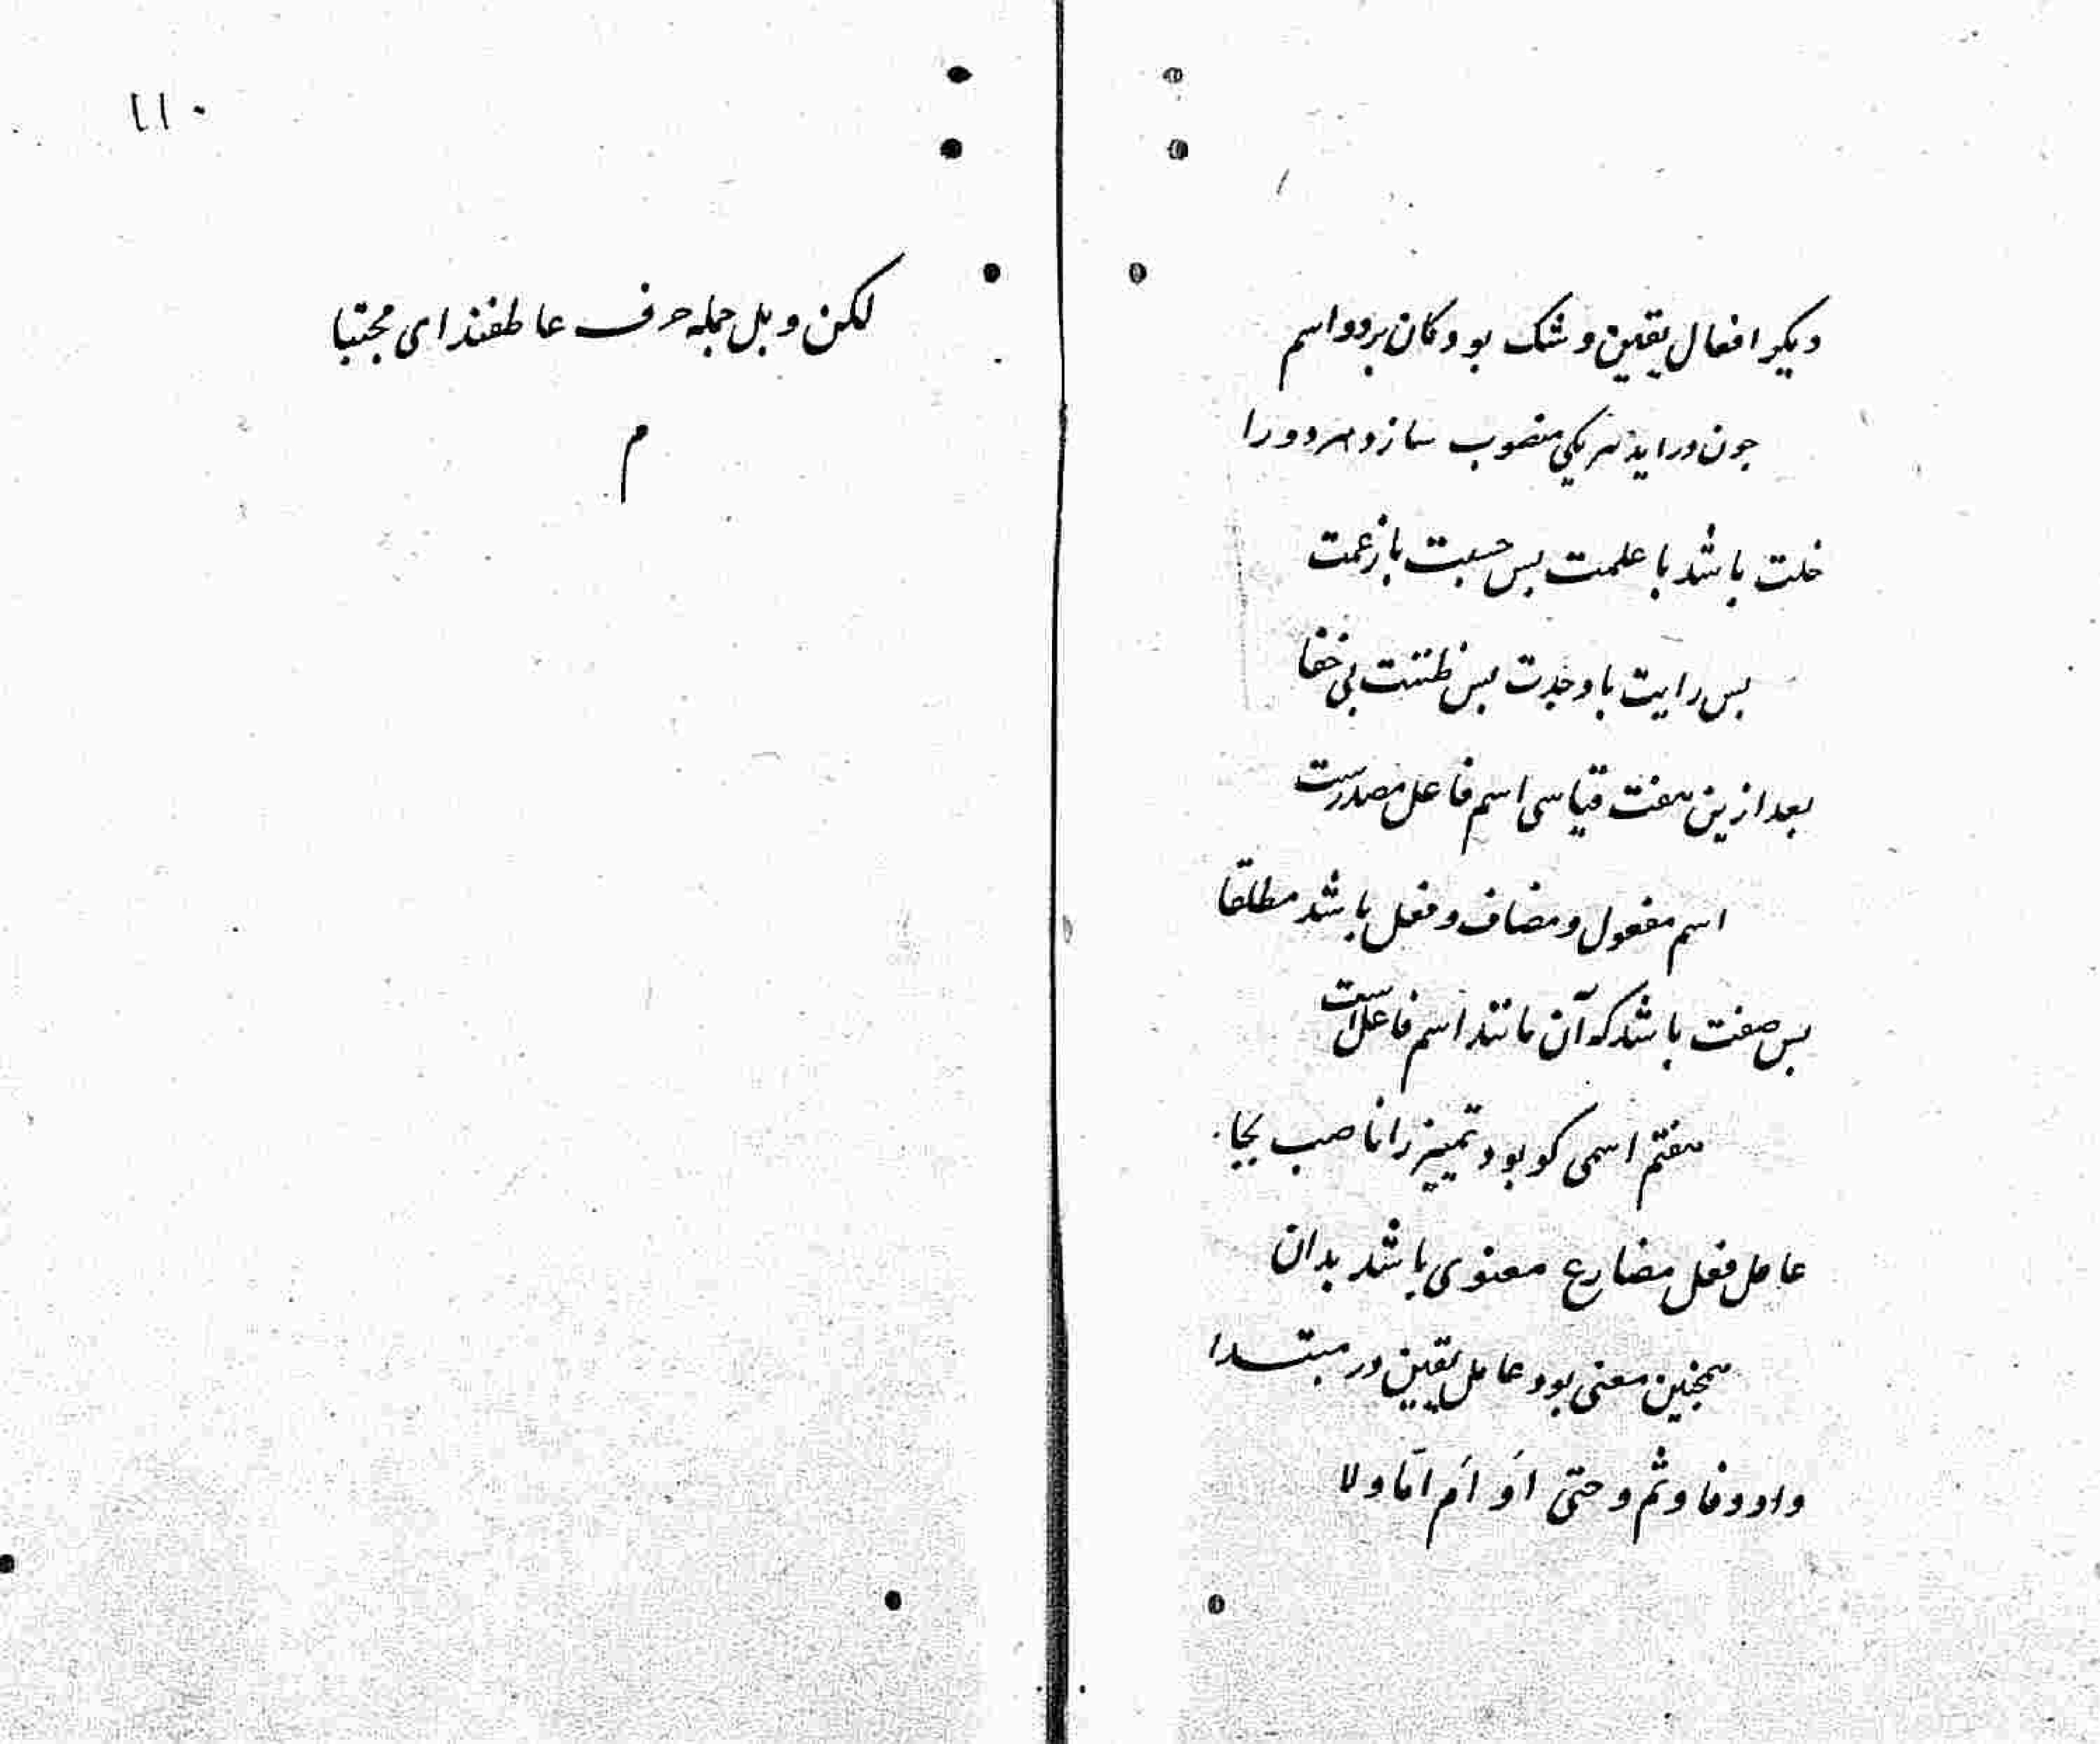 دیکر افعال یقین و شک بود کان بر دو اسم
جون دراید هر یکی منصوب سازد هر دو را
خلت باشد با علمت بس حسبت با زعمت
بس رایت با وجدت بس ظننت بی خفا
بعد ازین هفت قیاسی اسم فاعل مصدرست
اسم مفعول و مضاف و فعل باشد مطلقا
بس صفت باشد که آن مانند اسم فاعل است
هفتم اسمی کو بود تمییز را ناصب بجا
عامل فعل مضارع معنوی باشد بدان
همجنین معنی بود عامل یقین در مبتدا
واو و فا و ثم و حتی اَو اَم امّا و لا
۱۱۰
لکن و بل جمله حرف عاطفند ای مجتبا
م